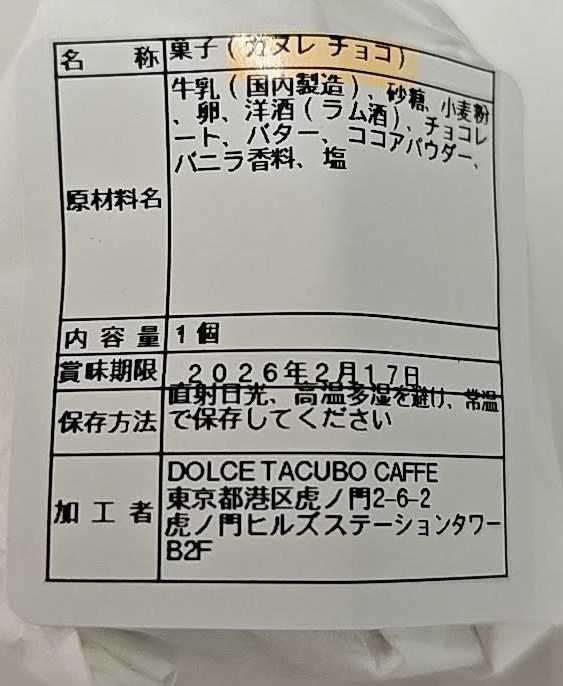 名称 菓子(カヌレ チョコ)
原材料名 牛乳(国内製造)、砂糖、小麦粉
、卵、洋酒(ラム酒)、チョコレ
ート、バター、ココアパウダー、
バニラ香料、塩
内容量 1個
賞味期限 2026年2月17日
保存方法 直射日光、高温多湿を避け、常温
で保存してください
加工者 DOLCE TACUBO CAFFE
東京都港区虎ノ門2-6-2
虎ノ門ヒルズステーションタワー
B2F